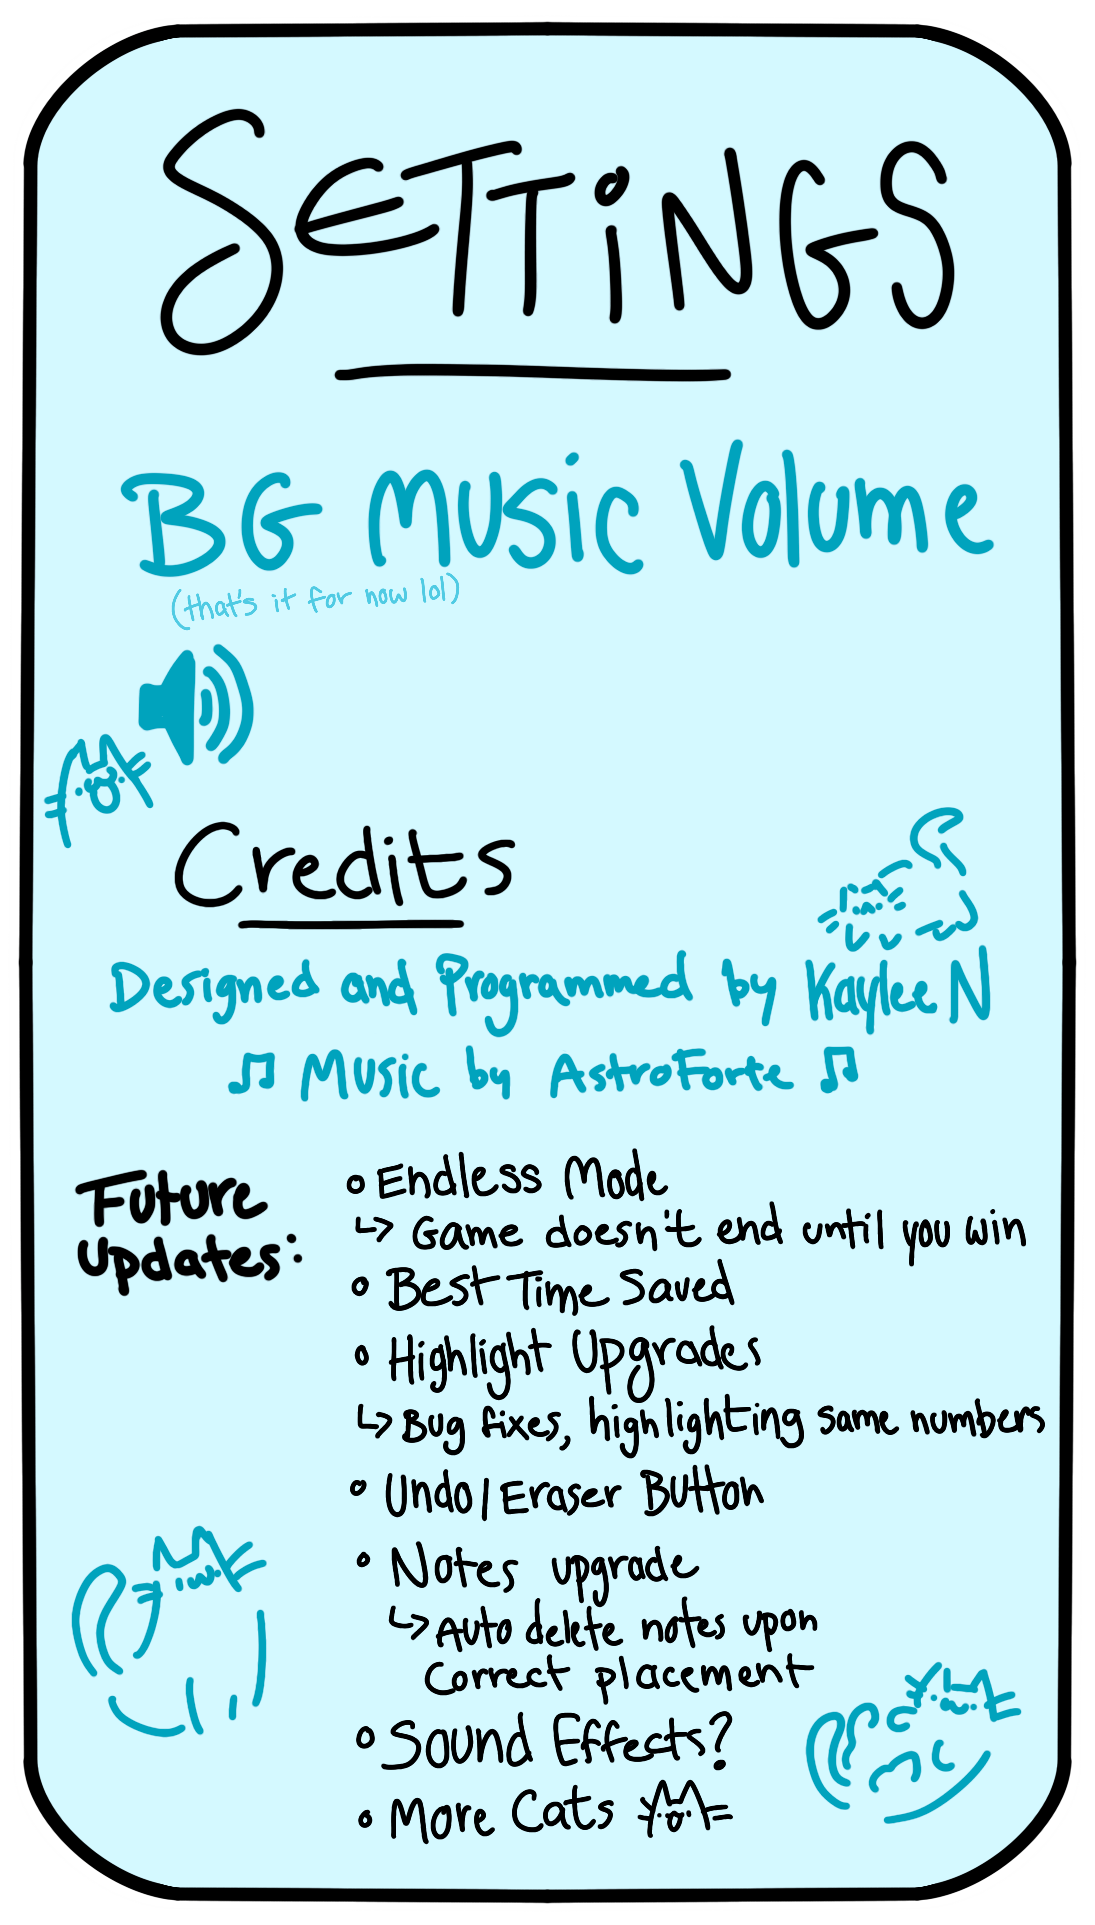 SETTiNGS
BG Music Volume
(that's it for now lol)
Credits
Designed and Programmed by Kaylee N
♫ Music by AstroForte ♫
Future Updates:
• Endless Mode
↳ Game doesn't end until you win
• Best Time Saved
• Highlight Upgrades
↳ Bug fixes, highlighting same numbers
• Undo/Eraser Button
• Notes upgrade
↳ Auto delete notes upon
correct placement
• Sound Effects?
• More Cats